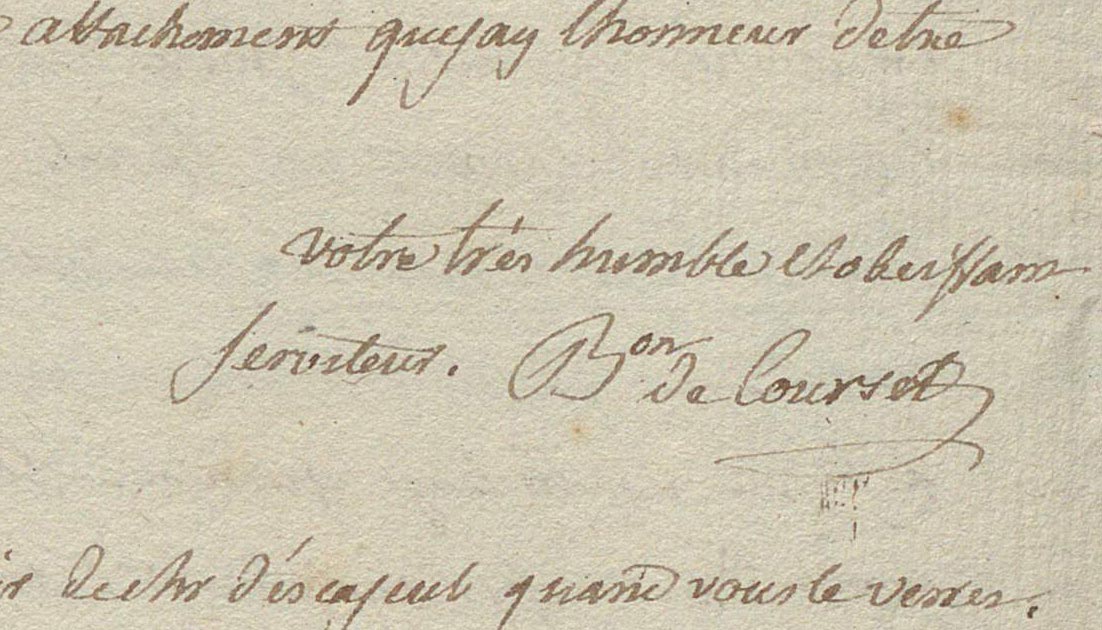 attachement que jay lhonneur detre
votre très humble et obeissant
serviteur. Bon de Courset
de chr quand vous le verrez.